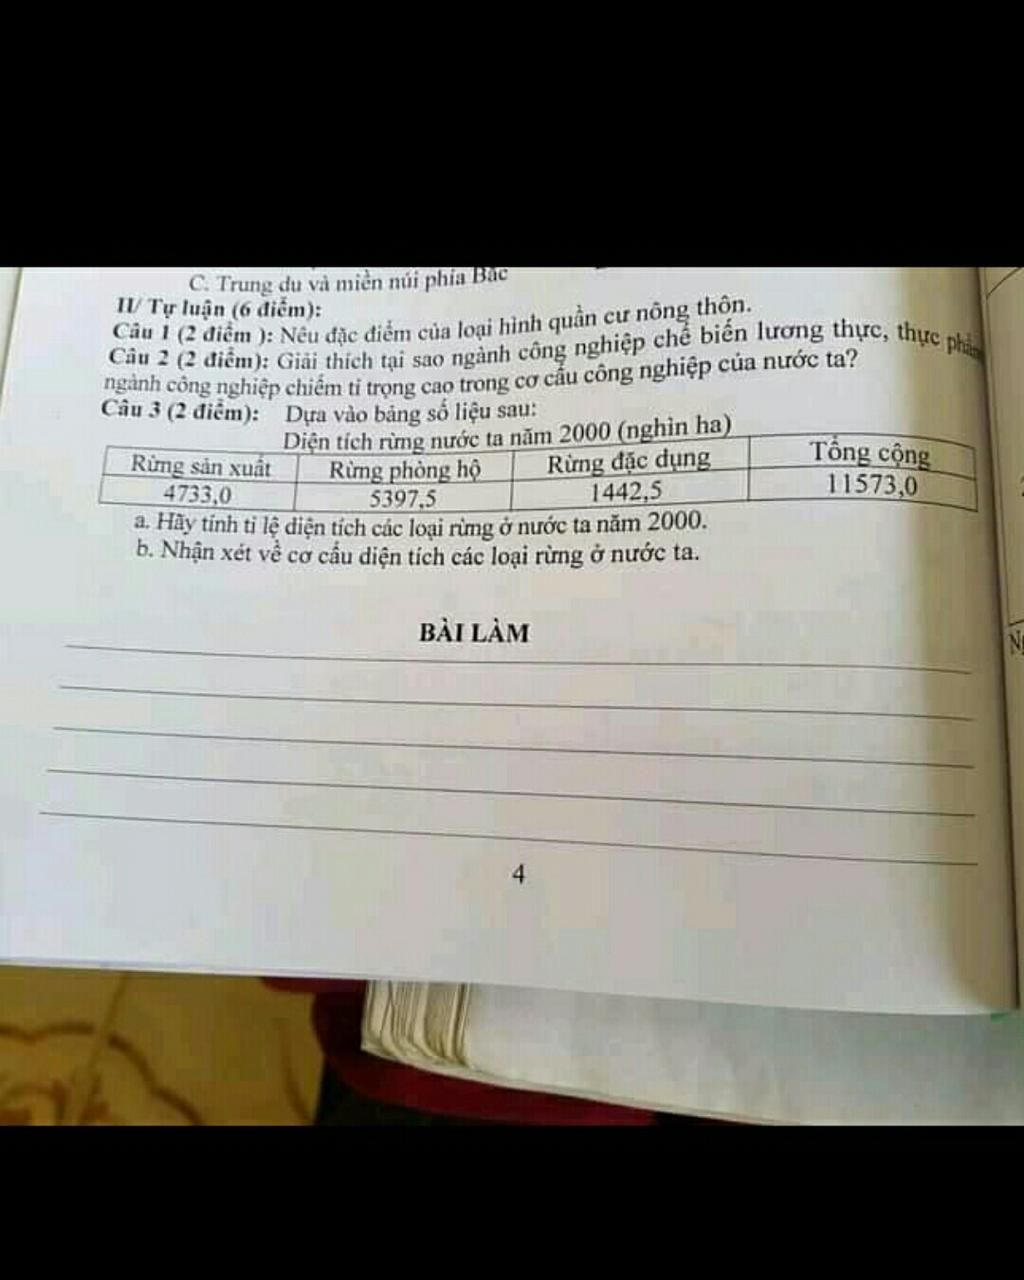 C. Trung du và miền núi phía Bắc
II/ Tự luận (6 điểm):
Câu 1 (2 điểm ): Nêu đặc điểm của loại hình quần cư nông thôn.
Câu 2 (2 điểm): Giải thích tại sao ngành công nghiệp chế biến lương thực, thực phẩm
ngành công nghiệp chiếm tỉ trọng cao trong cơ cấu công nghiệp của nước ta?
Câu 3 (2 điểm): Dựa vào bảng số liệu sau:
Diện tích rừng nước ta năm 2000 (nghìn ha)
Rừng sản xuất Rừng phòng hộ Rừng đặc dụng Tổng cộng
4733,0 5397,5 1442,5 11573,0
a. Hãy tính tỉ lệ diện tích các loại rừng ở nước ta năm 2000.
b. Nhận xét về cơ cấu diện tích các loại rừng ở nước ta.
BÀI LÀM
4